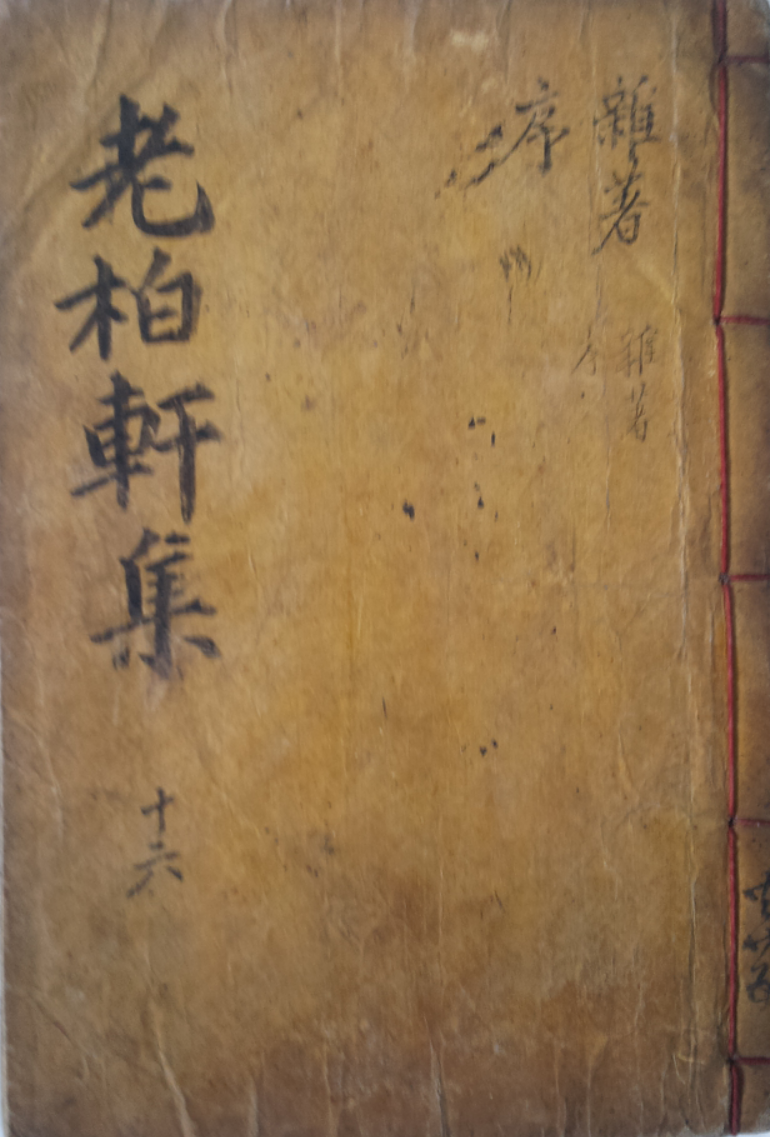 雜著
序
雜著
老柏軒集
十六